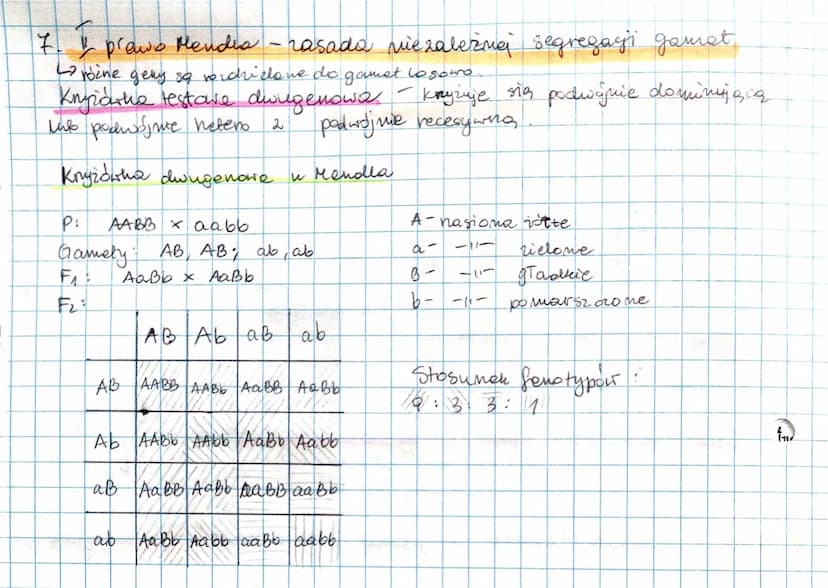 7. II prawo Mendla - zasada niezależnej segregacji gamet
↳ różne geny są rozdzielane do gamet losowo.
Krzyżówka testowa dwugenowa - krzyżuje się podwójnie dominującą
lub podwójnie hetero z podwójnie recesywną.
Krzyżówka dwugenowa u Mendla
P: AABB × aabb
Gamety: AB, AB; ab, ab
F1: AaBb × AaBb
F2:
A - nasiona żółte
a - -11- zielone
B - -11- gładkie
b - -11- pomarszczone
AB Ab aB ab
AB AABB AABb AaBB AaBb
Ab AABb AAbb AaBb Aabb
aB AaBB AaBb aaBB aaBb
ab AaBb Aabb aaBb aabb
Stosunek fenotypów:
9 : 3 : 3 : 1